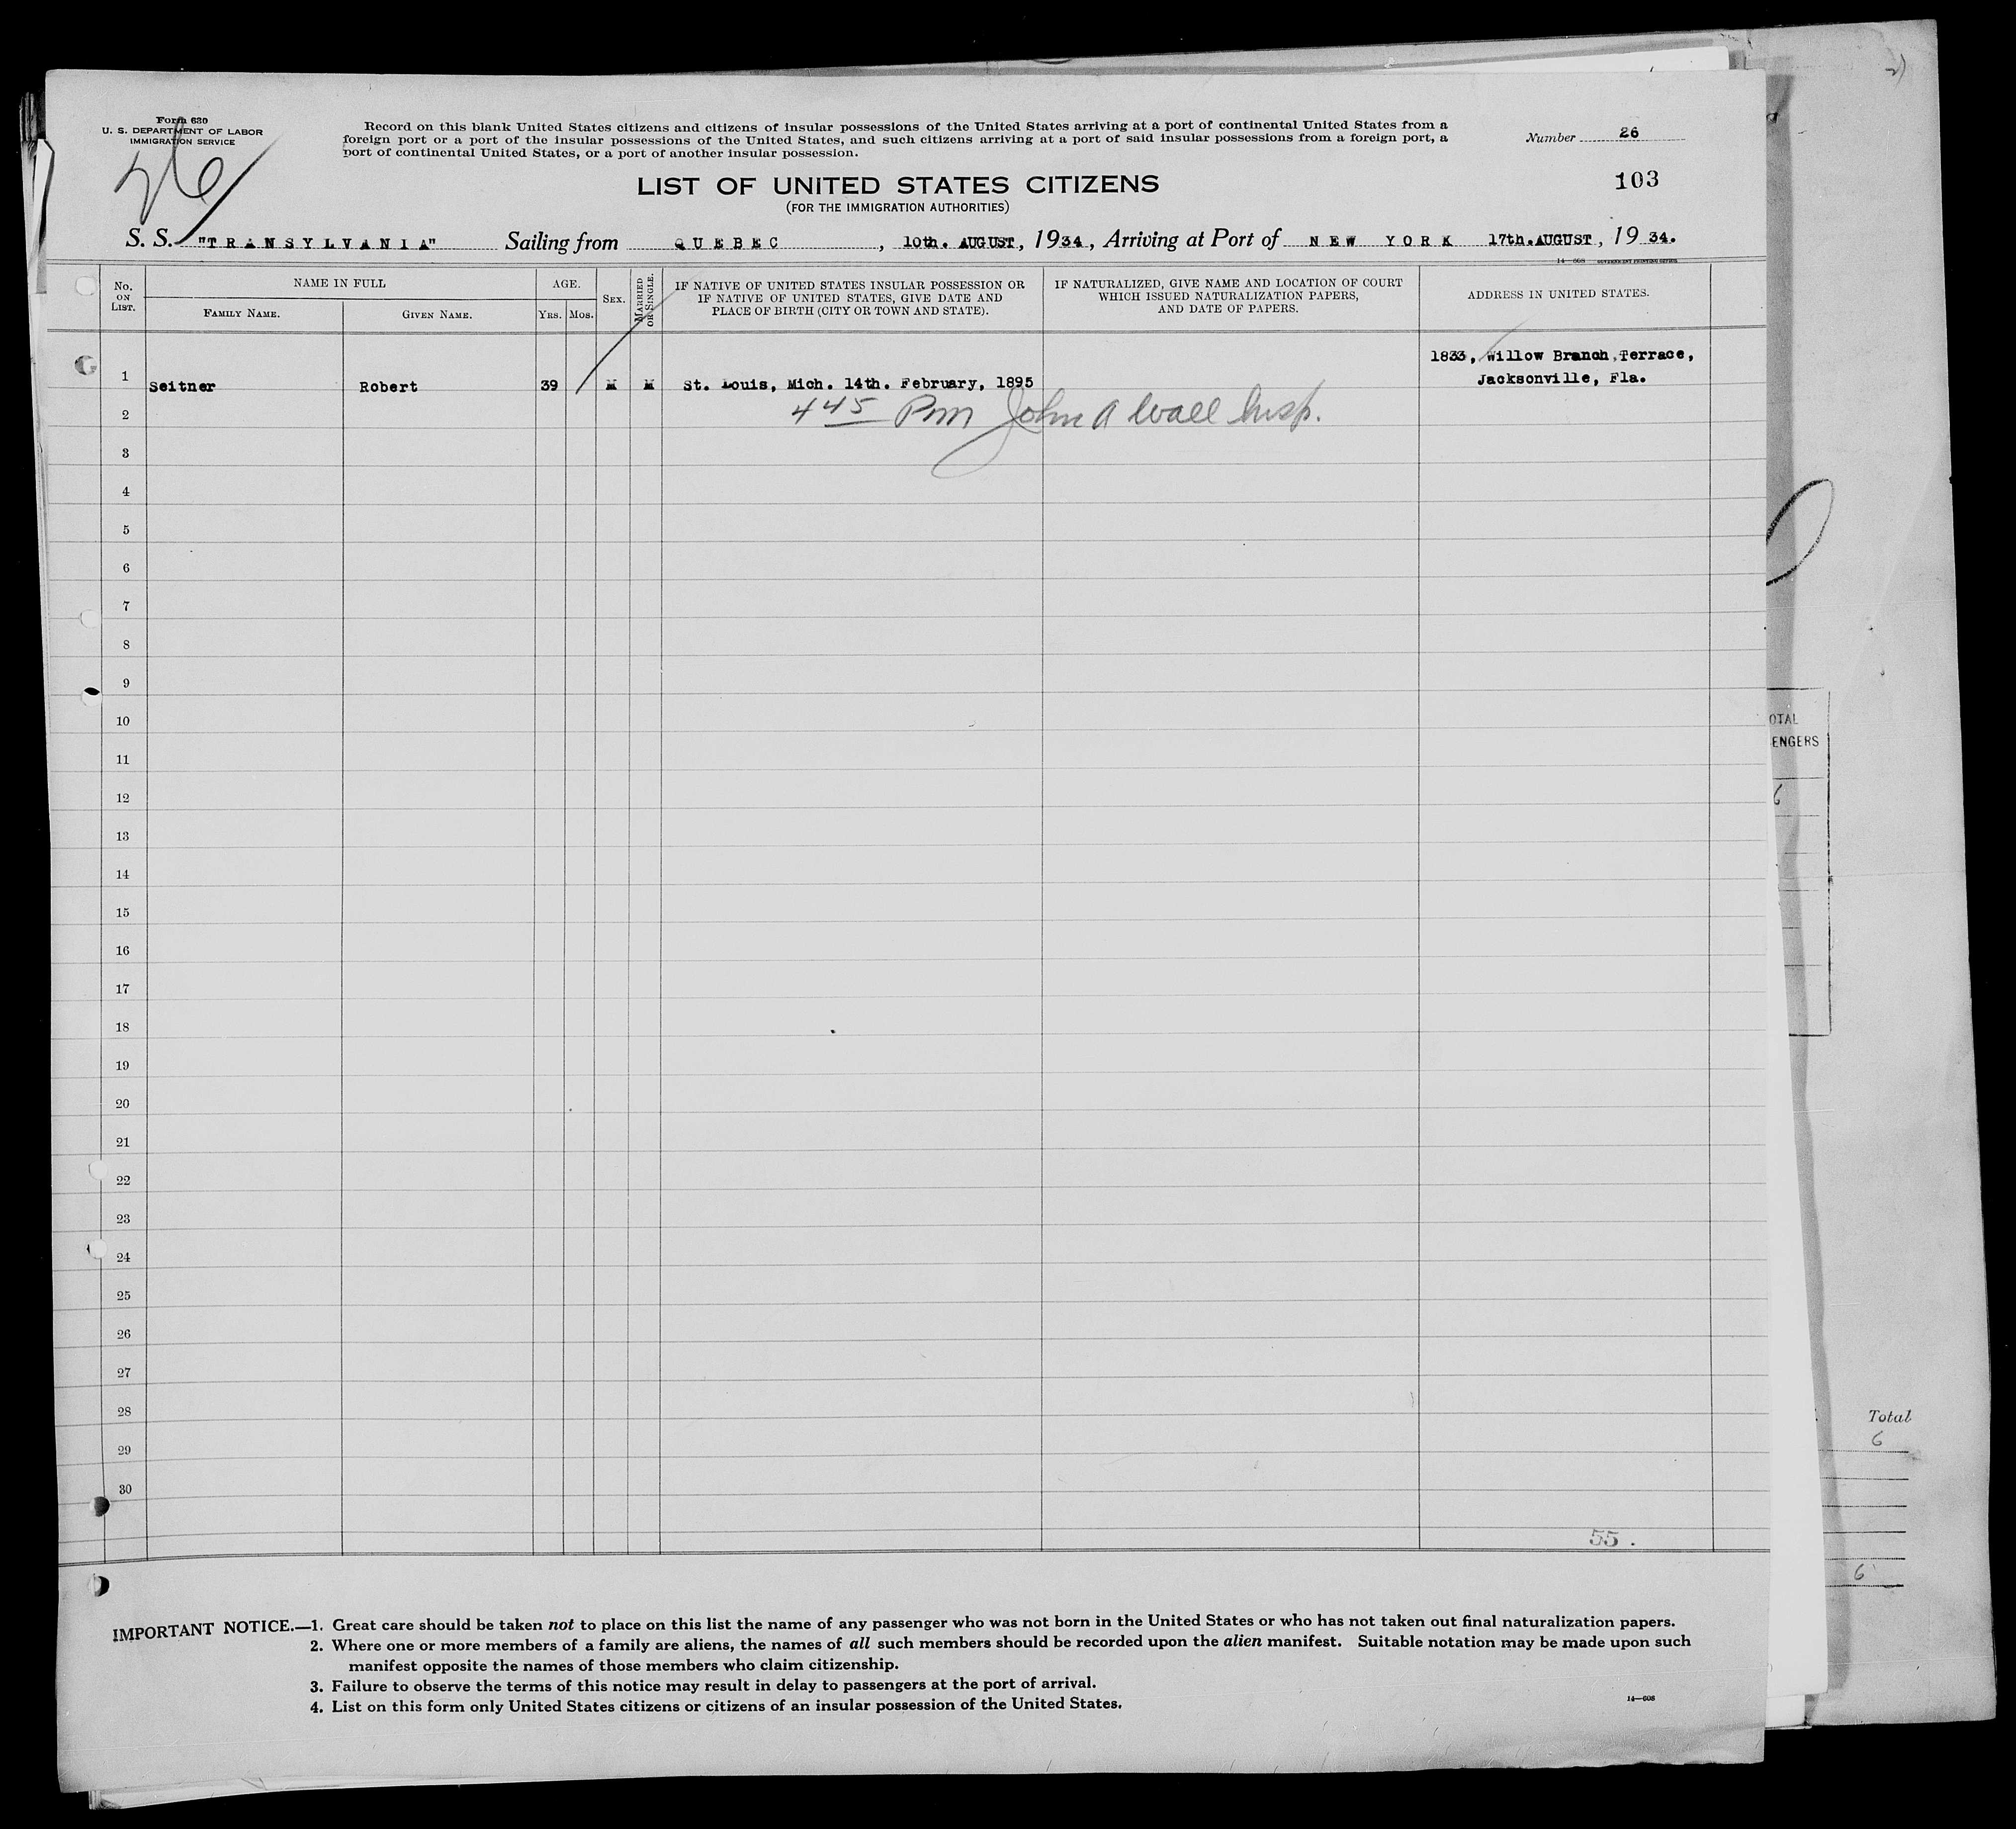 Form 630
U. S. DEPARTMENT OF LABOR
IMMIGRATION SERVICE
26
Record on this blank United States citizens and citizens of insular possessions of the United States arriving at a port of continental United States from a
foreign port or a port of the insular possessions of the United States, and such citizens arriving at a port of said insular possessions from a foreign port, a
port of continental United States, or a port of another insular possession.
Number 26
103
LIST OF UNITED STATES CITIZENS
(FOR THE IMMIGRATION AUTHORITIES)
S. S. "TRANSYLVANIA" Sailing from QUEBEC, 10th. AUGUST, 1934, Arriving at Port of NEW YORK 17th. AUGUST, 1934.
14—608 GOVERNMENT PRINTING OFFICE
No. ON LIST.
NAME IN FULL
FAMILY NAME.
GIVEN NAME.
AGE.
YRS.
MOS.
SEX.
MARRIED OR SINGLE.
IF NATIVE OF UNITED STATES INSULAR POSSESSION OR
IF NATIVE OF UNITED STATES, GIVE DATE AND
PLACE OF BIRTH (CITY OR TOWN AND STATE).
IF NATURALIZED, GIVE NAME AND LOCATION OF COURT
WHICH ISSUED NATURALIZATION PAPERS,
AND DATE OF PAPERS.
ADDRESS IN UNITED STATES.
1833, Willow Branch, Terrace,
1 Seitner Robert 39 M M St. Louis, Mich. 14th. February, 1895 Jacksonville, Fla.
2 4 45 Pm John A Wall Insp.
3
4
5
6
7
8
9
10
11
12
13
14
15
16
17
18
19
20
21
22
23
24
25
26
27
28
29
30
55.
IMPORTANT NOTICE.—1. Great care should be taken not to place on this list the name of any passenger who was not born in the United States or who has not taken out final naturalization papers.
2. Where one or more members of a family are aliens, the names of all such members should be recorded upon the alien manifest. Suitable notation may be made upon such
manifest opposite the names of those members who claim citizenship.
3. Failure to observe the terms of this notice may result in delay to passengers at the port of arrival.
4. List on this form only United States citizens or citizens of an insular possession of the United States.
14—608
OTAL
ENGERS
6
Total
6
6